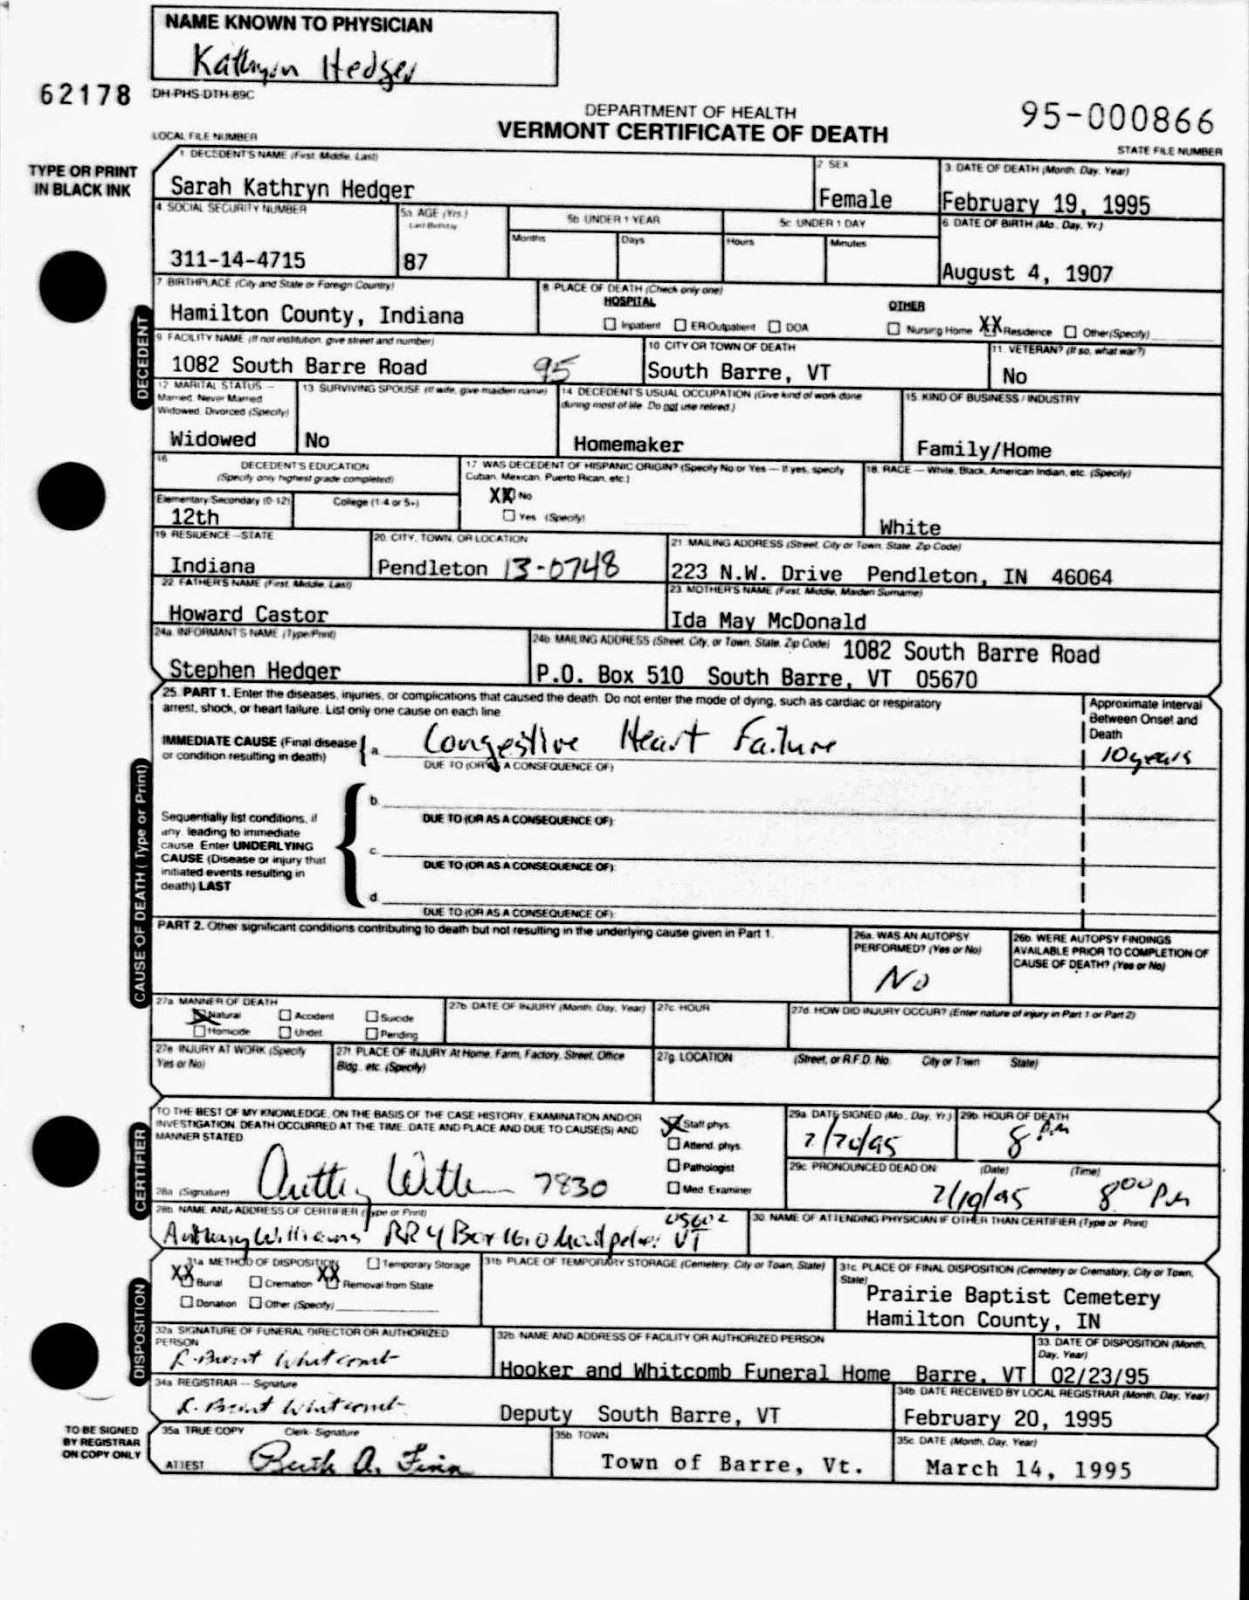 NAME KNOWN TO PHYSICIAN
Kathryn Hedger
62178
DH-PHS-DTH-89C
DEPARTMENT OF HEALTH
95-000866
LOCAL FILE NUMBER
VERMONT CERTIFICATE OF DEATH
STATE FILE NUMBER
TYPE OR PRINT
IN BLACK INK
1 DECEDENT'S NAME (First, Middle, Last)
2 SEX
3. DATE OF DEATH (Month, Day, Year)
Sarah Kathryn Hedger
Female
February 19, 1995
4 SOCIAL SECURITY NUMBER
5a. AGE (Yrs.)
Last Birthday
5b UNDER 1 YEAR
5c UNDER 1 DAY
6. DATE OF BIRTH (Mo., Day, Yr.)
Months
Days
Hours
Minutes
311-14-4715
87
August 4, 1907
7 BIRTHPLACE (City and State or Foreign Country)
8. PLACE OF DEATH (Check only one)
HOSPITAL
OTHER
Hamilton County, Indiana
Inpatient
ER/Outpatient
DOA
Nursing Home
XX
Residence
Other(Specify)
DECEDENT
9 FACILITY NAME (If not institution, give street and number)
10. CITY OR TOWN OF DEATH
11. VETERAN? (If so, what war?)
1082 South Barre Road
95
South Barre, VT
No
12 MARITAL STATUS –
Married, Never Married
Widowed, Divorced (Specify)
13. SURVIVING SPOUSE (If wife, give maiden name)
14. DECEDENT'S USUAL OCCUPATION (Give kind of work done
during most of life. Do not use retired.)
15. KIND OF BUSINESS / INDUSTRY
Widowed
No
Homemaker
Family/Home
16
DECEDENT'S EDUCATION
(Specify only highest grade completed)
17 WAS DECEDENT OF HISPANIC ORIGIN? (Specify No or Yes — If yes, specify
Cuban, Mexican, Puerto Rican, etc.)
18. RACE — White, Black, American Indian, etc. (Specify)
Elementary/Secondary (0-12)
College (1-4 or 5+)
XX No
12th
Yes (Specify)
White
19. RESIDENCE –STATE
20. CITY, TOWN, OR LOCATION
21. MAILING ADDRESS (Street, City or Town, State, Zip Code)
Indiana
Pendleton
13-0748
223 N.W. Drive Pendleton, IN 46064
22. FATHER'S NAME (First, Middle, Last)
23. MOTHER'S NAME (First, Middle, Maiden Surname)
Howard Castor
Ida May McDonald
24a. INFORMANT'S NAME (Type/Print)
24b. MAILING ADDRESS (Street, City, or Town, State, Zip Code)
1082 South Barre Road
Stephen Hedger
P.O. Box 510 South Barre, VT 05670
25. PART 1. Enter the diseases, injuries, or complications that caused the death. Do not enter the mode of dying, such as cardiac or respiratory
arrest, shock, or heart failure. List only one cause on each line.
Approximate Interval
Between Onset and
Death
IMMEDIATE CAUSE (Final disease
or condition resulting in death)
a.
Congestive Heart Failure
10 years
DUE TO (OR AS A CONSEQUENCE OF)
CAUSE OF DEATH (Type or Print)
b.
Sequentially list conditions, if
any, leading to immediate
cause. Enter UNDERLYING
CAUSE (Disease or injury that
initiated events resulting in
death) LAST
DUE TO (OR AS A CONSEQUENCE OF)
c.
DUE TO (OR AS A CONSEQUENCE OF)
d.
DUE TO (OR AS A CONSEQUENCE OF)
PART 2. Other significant conditions contributing to death but not resulting in the underlying cause given in Part 1.
26a. WAS AN AUTOPSY
PERFORMED? (Yes or No)
26b. WERE AUTOPSY FINDINGS
AVAILABLE PRIOR TO COMPLETION OF
CAUSE OF DEATH? (Yes or No)
No
27a MANNER OF DEATH
Natural
Accident
Suicide
Homicide
Undet.
Pending
27b. DATE OF INJURY (Month, Day, Year)
27c. HOUR
27d. HOW DID INJURY OCCUR? (Enter nature of injury in Part 1 or Part 2)
27e. INJURY AT WORK (Specify
Yes or No)
27f. PLACE OF INJURY At Home, Farm, Factory, Street, Office
Bldg., etc. (Specify)
27g. LOCATION
(Street, or R.F.D. No.
City or Town
State)
CERTIFIER
TO THE BEST OF MY KNOWLEDGE, ON THE BASIS OF THE CASE HISTORY, EXAMINATION AND/OR
INVESTIGATION, DEATH OCCURRED AT THE TIME, DATE AND PLACE AND DUE TO CAUSE(S) AND
MANNER STATED
Staff phys.
Attend. phys.
Pathologist
Med. Examiner
29a. DATE SIGNED (Mo., Day, Yr.)
29b. HOUR OF DEATH
2/20/95
8 PM
28a (Signature)
7830
29c. PRONOUNCED DEAD ON:
(Date)
(Time)
2/19/95
8:00 PM
28b. NAME AND ADDRESS OF CERTIFIER (Type or Print)
30. NAME OF ATTENDING PHYSICIAN IF OTHER THAN CERTIFIER (Type or Print)
Anthony Williams RR 4 Box 1610 Montpelier VT 05602
DISPOSITION
31a. METHOD OF DISPOSITION
Temporary Storage
XX Burial
Cremation
XX Removal from State
Donation
Other (Specify)
31b. PLACE OF TEMPORARY STORAGE (Cemetery, City or Town, State)
31c. PLACE OF FINAL DISPOSITION (Cemetery or Crematory, City or Town,
State)
Prairie Baptist Cemetery
Hamilton County, IN
32a. SIGNATURE OF FUNERAL DIRECTOR OR AUTHORIZED
PERSON
32b. NAME AND ADDRESS OF FACILITY OR AUTHORIZED PERSON
33. DATE OF DISPOSITION (Month,
Day, Year)
R. Brent Whitcomb
Hooker and Whitcomb Funeral Home Barre, VT
02/23/95
34a. REGISTRAR — Signature
34b. DATE RECEIVED BY LOCAL REGISTRAR (Month, Day, Year)
R. Brent Whitcomb
Deputy South Barre, VT
February 20, 1995
TO BE SIGNED
BY REGISTRAR
ON COPY ONLY
35a. TRUE COPY
Clerk- Signature
35b. TOWN
35c. DATE (Month, Day, Year)
ATTEST
Town of Barre, Vt.
March 14, 1995